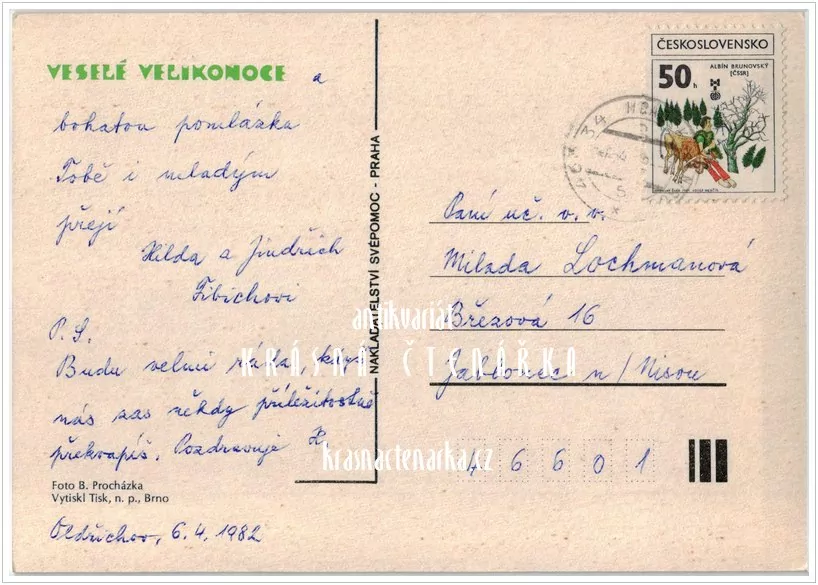 VESELÉ VELIKONOCE a
bohatou pomlázku
Tobě i mladým
přejí
Hilda a Jindřich
Fibichovi
P. S.
Budu velmi ráda, když
nás zas někdy příležitostně
překvapíš. Pozdravuje H
Foto B. Procházka
Vytiskl Tisk, n. p., Brno
Oldřichov, 6. 4. 1982
NAKLADATELSTVÍ SVÉPOMOC - PRAHA
ČESKOSLOVENSKO
ALBÍN BRUNOVSKÝ
(ČSSR)
50 h
Paní uč. v. v.
Milada Lochmanová
Březová 16
Jablonec n/Nisou
46601
antikvariát
KRÁSNÁ ČTENÁŘKA
krasnactenarka.cz